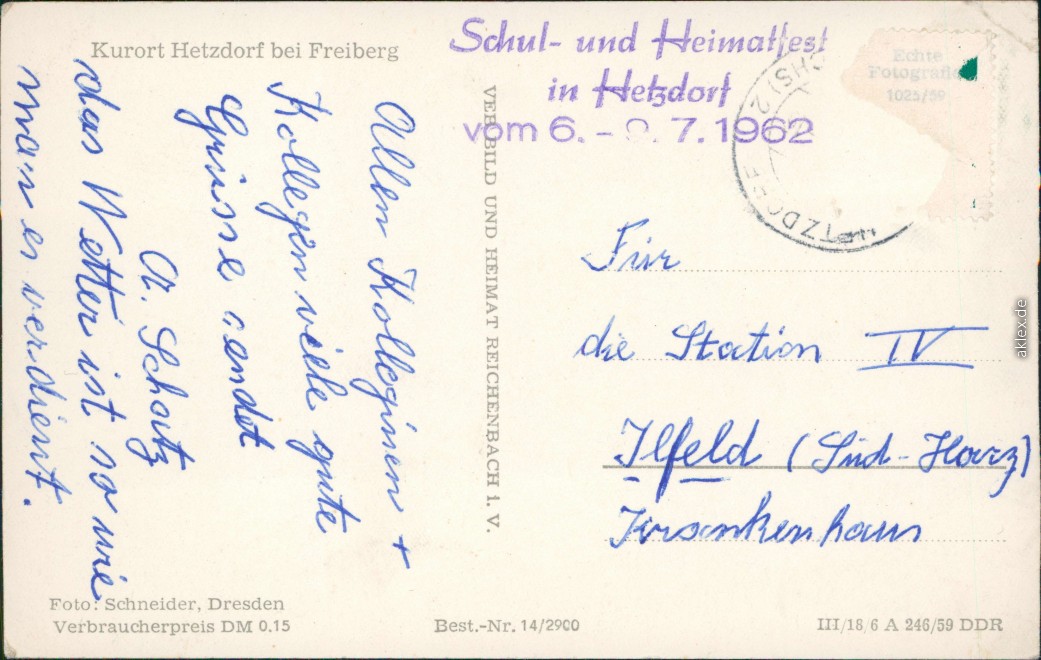 Kurort Hetzdorf bei Freiberg
Schul- und Heimatfest
in Hetzdorf
vom 6. - 7. 1962
Echte
Fotografie
1025/59
Allen Kolleginen +
Kollegen viele gute
Grüsse sendet
A. Schatz
das Wetter ist so wie
man es verdient.
VEB BILD UND HEIMAT REICHENBACH i. V.
Für
die Station IV
Ilfeld (Süd-Harz)
Krankenhaus
Foto: Schneider, Dresden
Verbraucherpreis DM 0.15
Best.-Nr. 14/2900
III/18/6 A 246/59 DDR
aklex.de